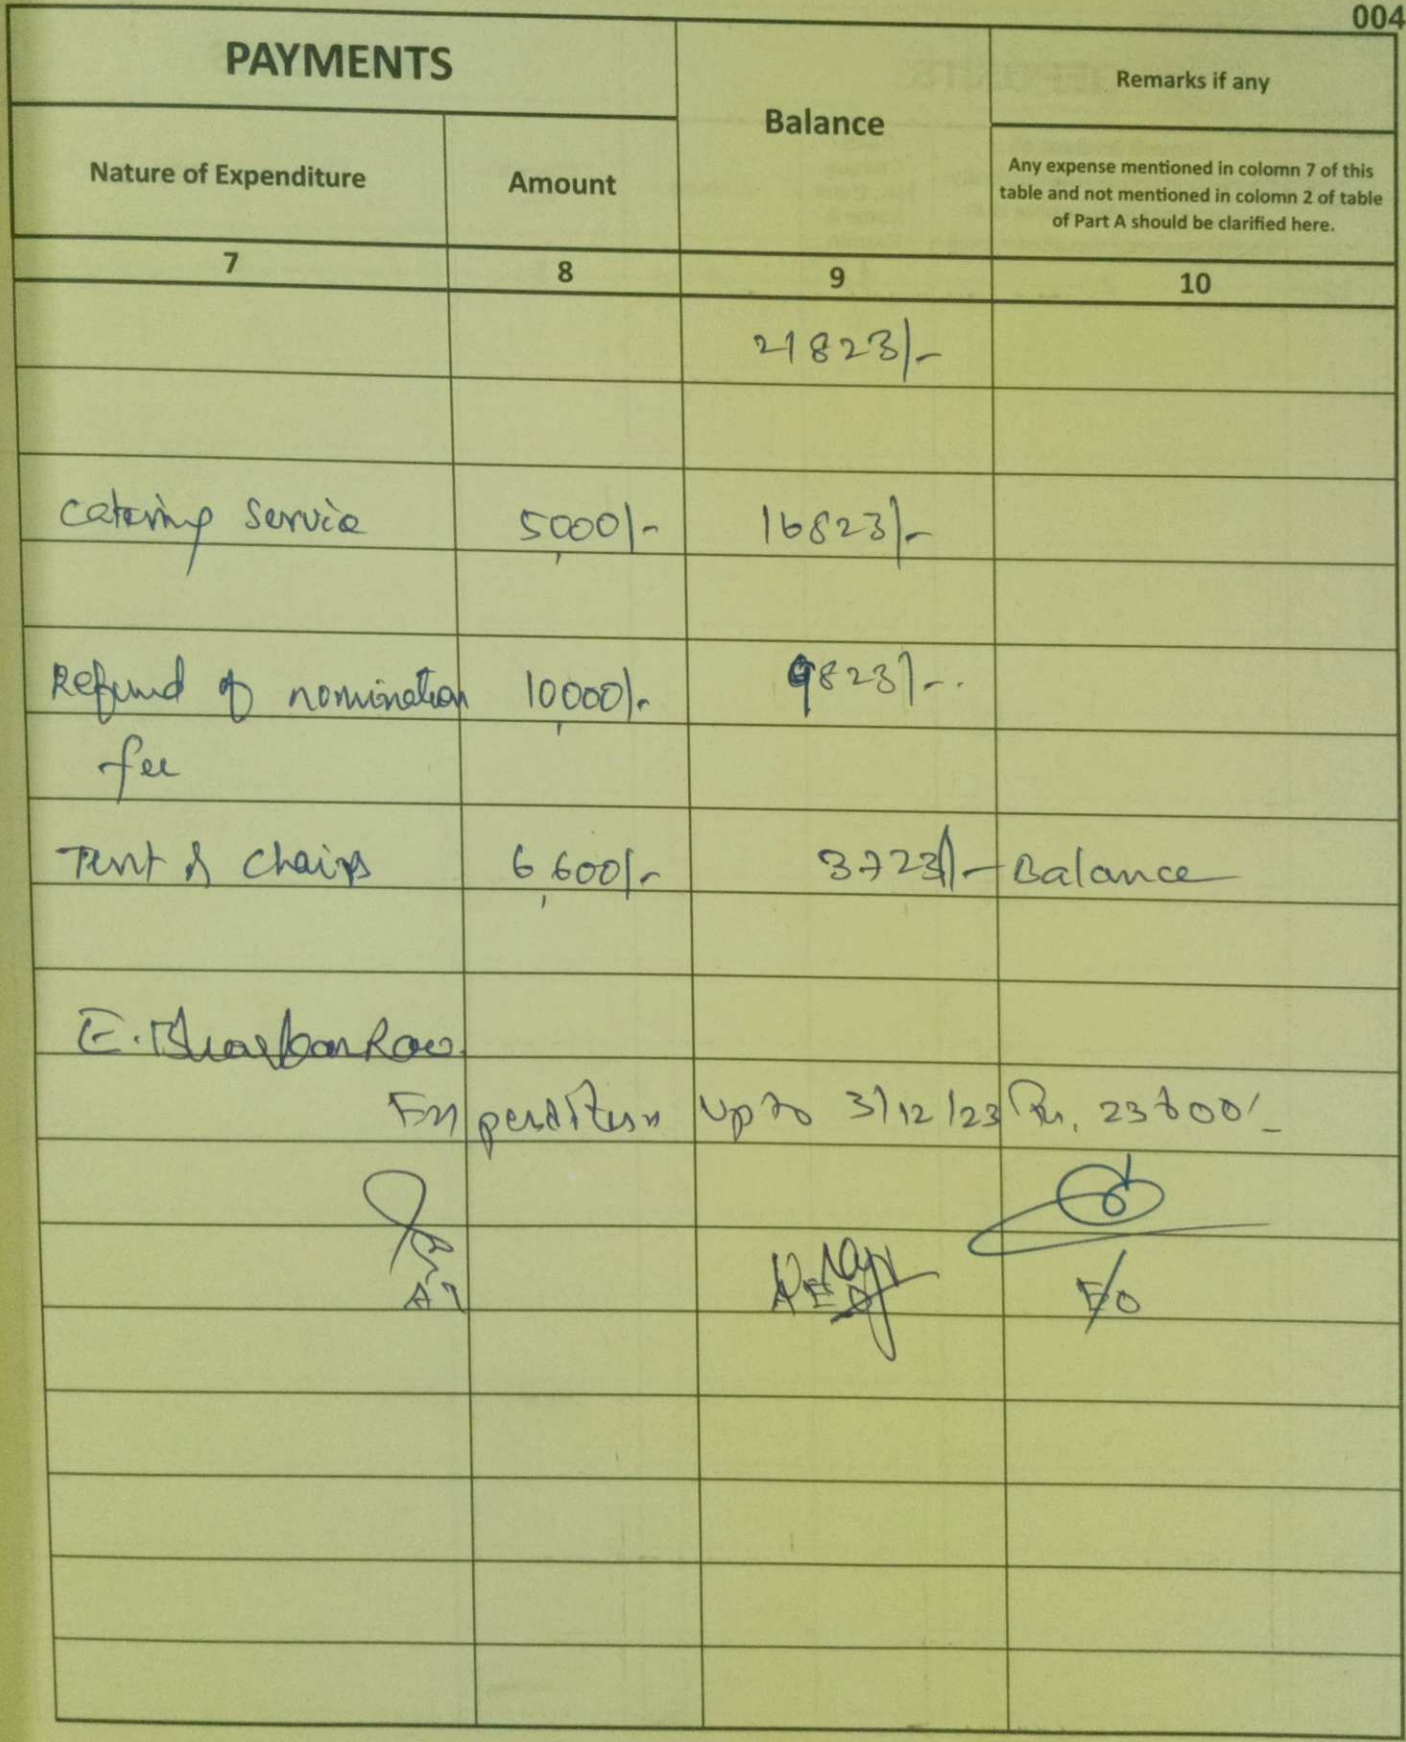 004
PAYMENTS
Balance
Remarks if any
Nature of Expenditure
Amount
Any expense mentioned in colomn 7 of this
table and not mentioned in colomn 2 of table
of Part A should be clarified here.
7 8 9 10
21823/-
Catering Service 5,000/- 16823/-
Refund of nomination 10,000/- 9823/-
fee
Tent & Chairs 6,600/- 3723/- Balance
E. Bhaskar Rao
Expenditure up to 3/12/23 Rs.